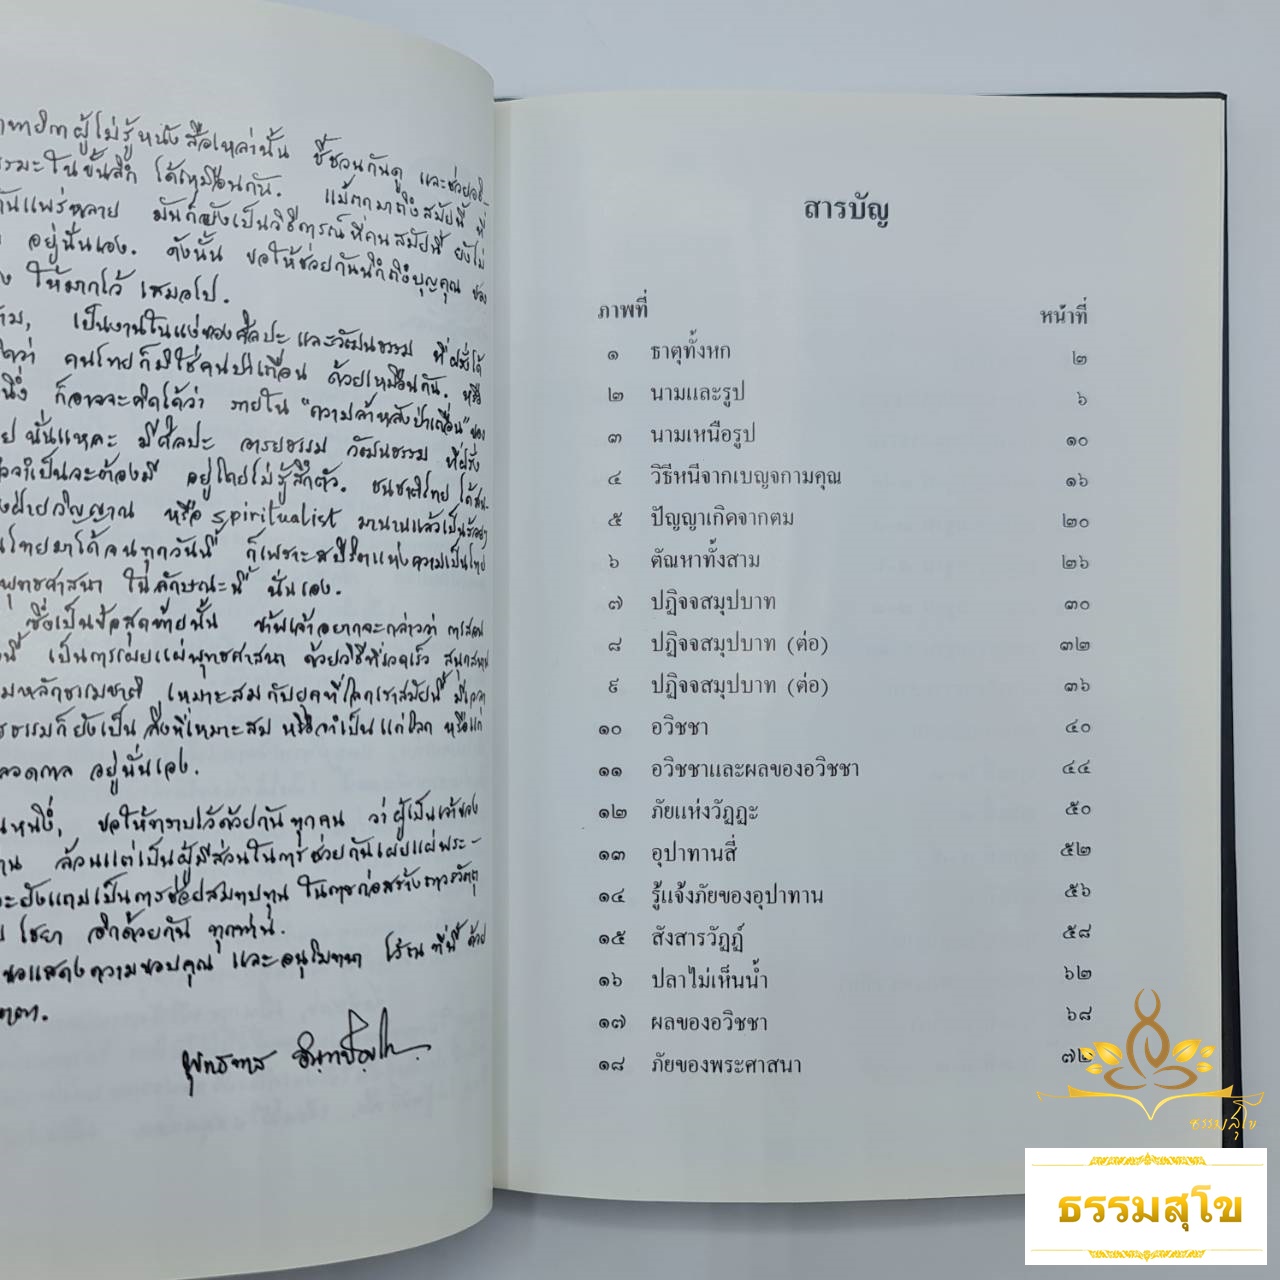 ผู้ไม่รู้หนังสือเหล่านั้น ชี้ชวนกันดู และช่วยอธิ-
ธรรมะในขั้นลึก ได้เหมือนกัน. แม้ตกมาถึงสมัยนี้ ที่
กันแพร่หลาย มันก็ยังเป็นวิธีการณ์ที่คนสมัยนี้ ยังไม่
อยู่นั่นเอง. ดังนั้น ขอให้ช่วยกันนึกถึงบุญคุณ ของ
ให้มากไว้ เสมอไป.
เป็นงานในแง่ของศิลปะและวัฒนธรรม ที่ฝรั่งได้
ว่า คนไทยก็มิใช่คนป่าเถื่อน ด้วยเหมือนกัน. หรือ
ก็อาจจะคิดได้ว่า ภายใน "ความล้าหลังป่าเถื่อน" ของ
นั่นแหละ มีศิลปะ อารยธรรม วัฒนธรรม ที่ฝรั่ง
จำเป็นจะต้องมี อยู่โดยไม่รู้สึกตัว. ชนชาติไทย ได้
ฝ่ายวิญญาณ หรือ spiritualist มานานแล้วเป็น
ไทยมาได้จนทุกวันนี้ ก็เพราะสปิริตแห่งความเป็นไทย
พุทธศาสนา ในลักษณะนี้ นั่นเอง.
ซึ่งเป็นข้อสุดท้ายนั้น ข้าพเจ้าอยากจะกล่าวว่า การสอน
นี้ เป็นการเผยแผ่พุทธศาสนา ด้วยวิธีที่รวดเร็ว สนุกสนาน
หลักธรรมชาติ เหมาะสมกับยุคที่โลกเราสมัยนี้ มีเวลา
ธรรมก็ยังเป็น สิ่งที่เหมาะสม หรือจำเป็นแก่โลก หรือแก่
ตลอดกาล อยู่นั่นเอง.
หนึ่ง, ขอให้ทราบไว้ด้วยกันทุกคน ว่าผู้เป็นเจ้าของ
ล้วนแต่เป็นผู้มีส่วนในการช่วยกันเผยแผ่พระ-
ยังแถมเป็นการช่วยสมทบทุน ในการก่อสร้างถาวรวัตถุ
ไชยา อีกด้วยกัน ทุกท่าน.
ขอแสดงความขอบคุณ และอนุโมทนา ไว้ณที่นี้ ด้วย
พุทธทาส อินทปัญโญ.
สารบัญ
ภาพที่ หน้าที่
๑ ธาตุทั้งหก ๒
๒ นามและรูป ๖
๓ นามเหนือรูป ๑๐
๔ วิธีหนีจากเบญจกามคุณ ๑๖
๕ ปัญญาเกิดจากตม ๒๐
๖ ตัณหาทั้งสาม ๒๖
๗ ปฏิจจสมุปบาท ๓๐
๘ ปฏิจจสมุปบาท (ต่อ) ๓๒
๙ ปฏิจจสมุปบาท (ต่อ) ๓๖
๑๐ อวิชชา ๔๐
๑๑ อวิชชาและผลของอวิชชา ๔๔
๑๒ ภัยแห่งวัฏฏะ ๕๐
๑๓ อุปาทานสี่ ๕๒
๑๔ รู้แจ้งภัยของอุปาทาน ๕๖
๑๕ สังสารวัฏฏ์ ๕๘
๑๖ ปลาไม่เห็นน้ำ ๖๒
๑๗ ผลของอวิชชา ๖๘
๑๘ ภัยของพระศาสนา ๗๒
ธรรมสุโข
ธรรมสุโข